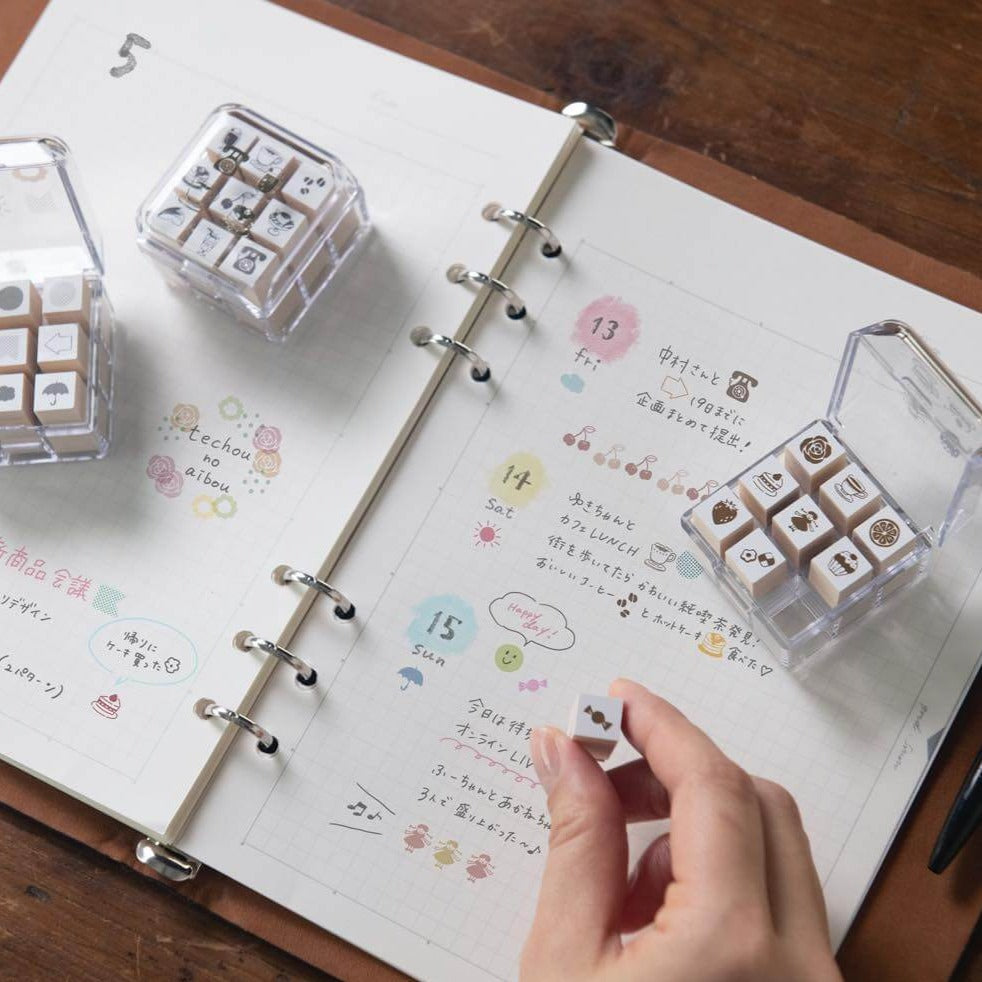 5
techou
no
aibou
新商品会議
デザイン
帰りに
ケーキ買った
(2パターン)
13
fri
中村さんと
19日までに
企画まとめて提出!
14
Sat
ゆきちゃんと
カフェLUNCH
街を歩いてたらかわいい純喫茶発見!
おいしいコーヒーとホットケーキ食べた♡
15
Sun
Happy
day!
今日は待ち
オンラインLIV
ふーちゃんとあかねちゃ
3人で盛り上がった〜♪